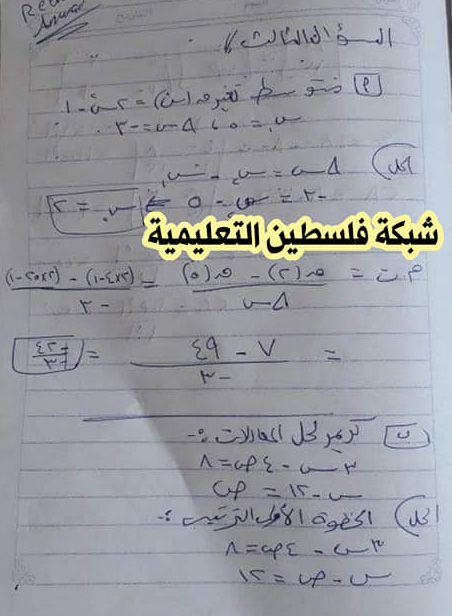 السؤال الثالث //
أ) متوسط تغير ق(س) = ٢س٢ - ١
س١ = ٥ ، Δس = -٣
الحل) Δس = س٢ - س١
-٣ = س٢ - ٥ ⇐ س٢ = ٢
شبكة فلسطين التعليمية
م.ت = ق(٢) - ق(٥) / Δس = (٢×٤-١) - (٢×٢٥-١) / -٣
= ٧ - ٤٩ / -٣ = -٤٢ / -٣
ب) كريمر لحل المعادلات :-
٣س - ٤ص = ٨
س - ١٢ = ص
الحل) الخطوة الأولى الترتيب :-
٣س - ٤ص = ٨
س - ص = ١٢